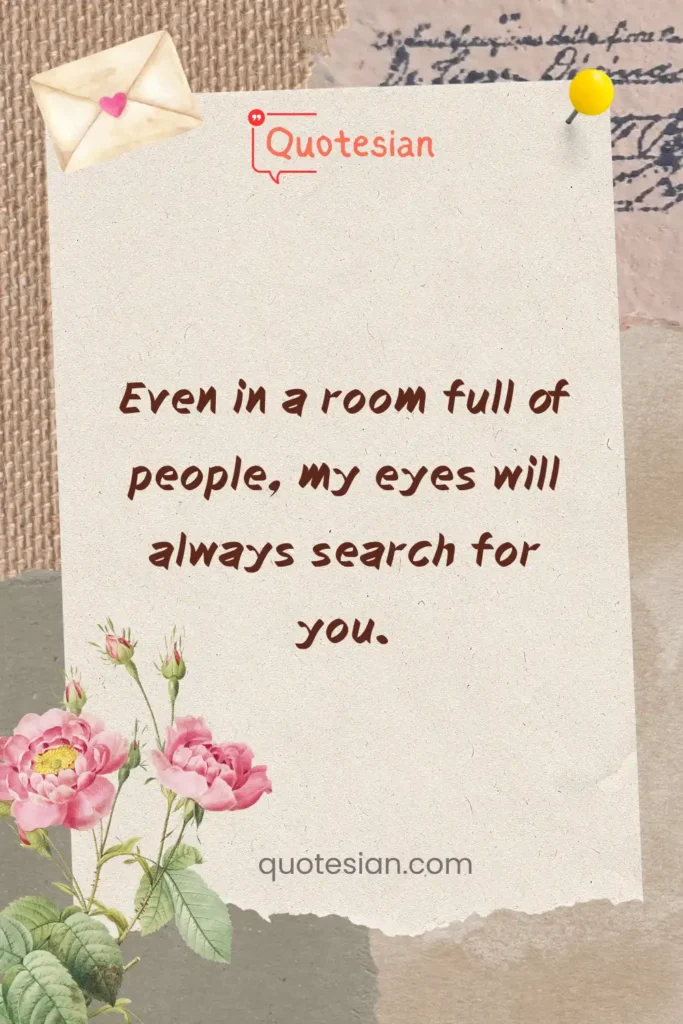 Quotesian
Even in a room full of
people, my eyes will
always search for
you.
quotesian.com